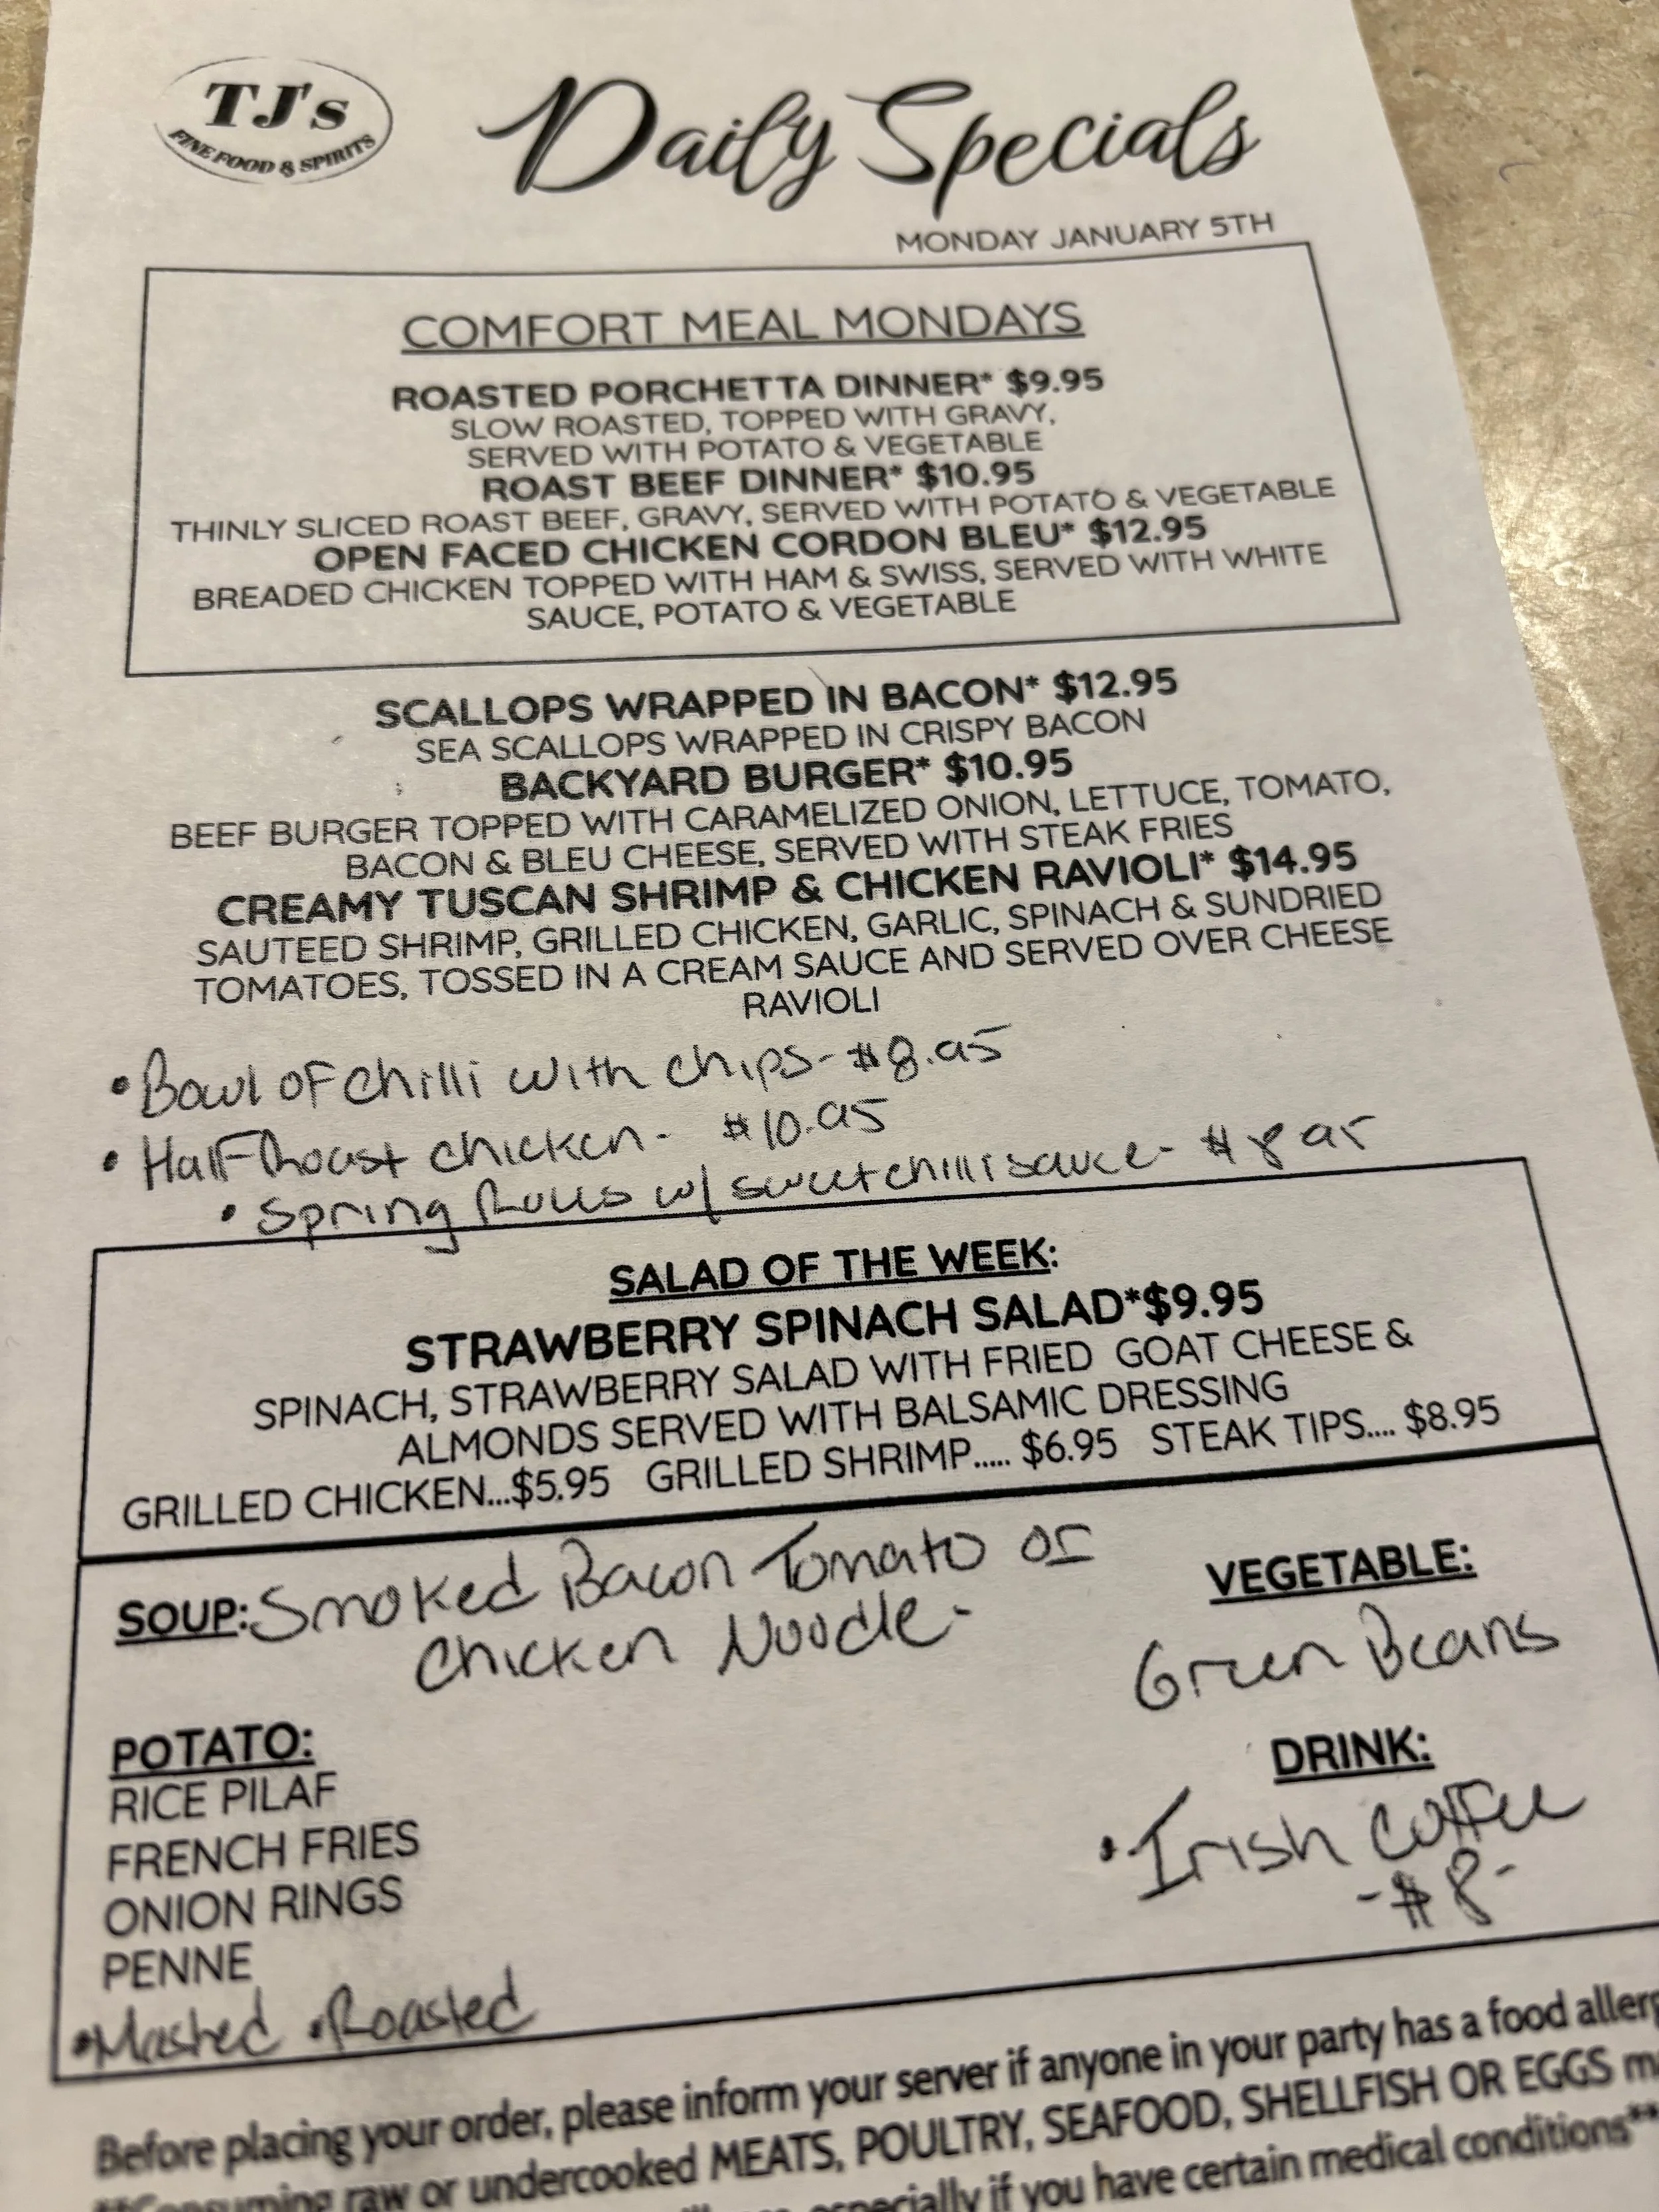 TJ's
FINE FOOD & SPIRITS
Daily Specials
MONDAY JANUARY 5TH
COMFORT MEAL MONDAYS
ROASTED PORCHETTA DINNER* $9.95
SLOW ROASTED, TOPPED WITH GRAVY,
SERVED WITH POTATO & VEGETABLE
ROAST BEEF DINNER* $10.95
THINLY SLICED ROAST BEEF, GRAVY, SERVED WITH POTATO & VEGETABLE
OPEN FACED CHICKEN CORDON BLEU* $12.95
BREADED CHICKEN TOPPED WITH HAM & SWISS, SERVED WITH WHITE
SAUCE, POTATO & VEGETABLE
SCALLOPS WRAPPED IN BACON* $12.95
SEA SCALLOPS WRAPPED IN CRISPY BACON
BACKYARD BURGER* $10.95
BEEF BURGER TOPPED WITH CARAMELIZED ONION, LETTUCE, TOMATO,
BACON & BLEU CHEESE, SERVED WITH STEAK FRIES
CREAMY TUSCAN SHRIMP & CHICKEN RAVIOLI* $14.95
SAUTEED SHRIMP, GRILLED CHICKEN, GARLIC, SPINACH & SUNDRIED
TOMATOES, TOSSED IN A CREAM SAUCE AND SERVED OVER CHEESE
RAVIOLI
• Bowl of chilli with chips - $8.95
• Half Roast chicken - $10.95
• Spring Rolls w/ sweet chilli sauce - $8.95
SALAD OF THE WEEK:
STRAWBERRY SPINACH SALAD*$9.95
SPINACH, STRAWBERRY SALAD WITH FRIED GOAT CHEESE &
ALMONDS SERVED WITH BALSAMIC DRESSING
GRILLED CHICKEN...$5.95 GRILLED SHRIMP..... $6.95 STEAK TIPS.... $8.95
SOUP: Smoked Bacon Tomato or
Chicken Noodle -
VEGETABLE:
Green Beans
POTATO:
RICE PILAF
FRENCH FRIES
ONION RINGS
PENNE
• Mashed • Roasted
DRINK:
• Irish Coffee
- $8 -
Before placing your order, please inform your server if anyone in your party has a food allerg
**Consuming raw or undercooked MEATS, POULTRY, SEAFOOD, SHELLFISH OR EGGS m
especially if you have certain medical conditions**